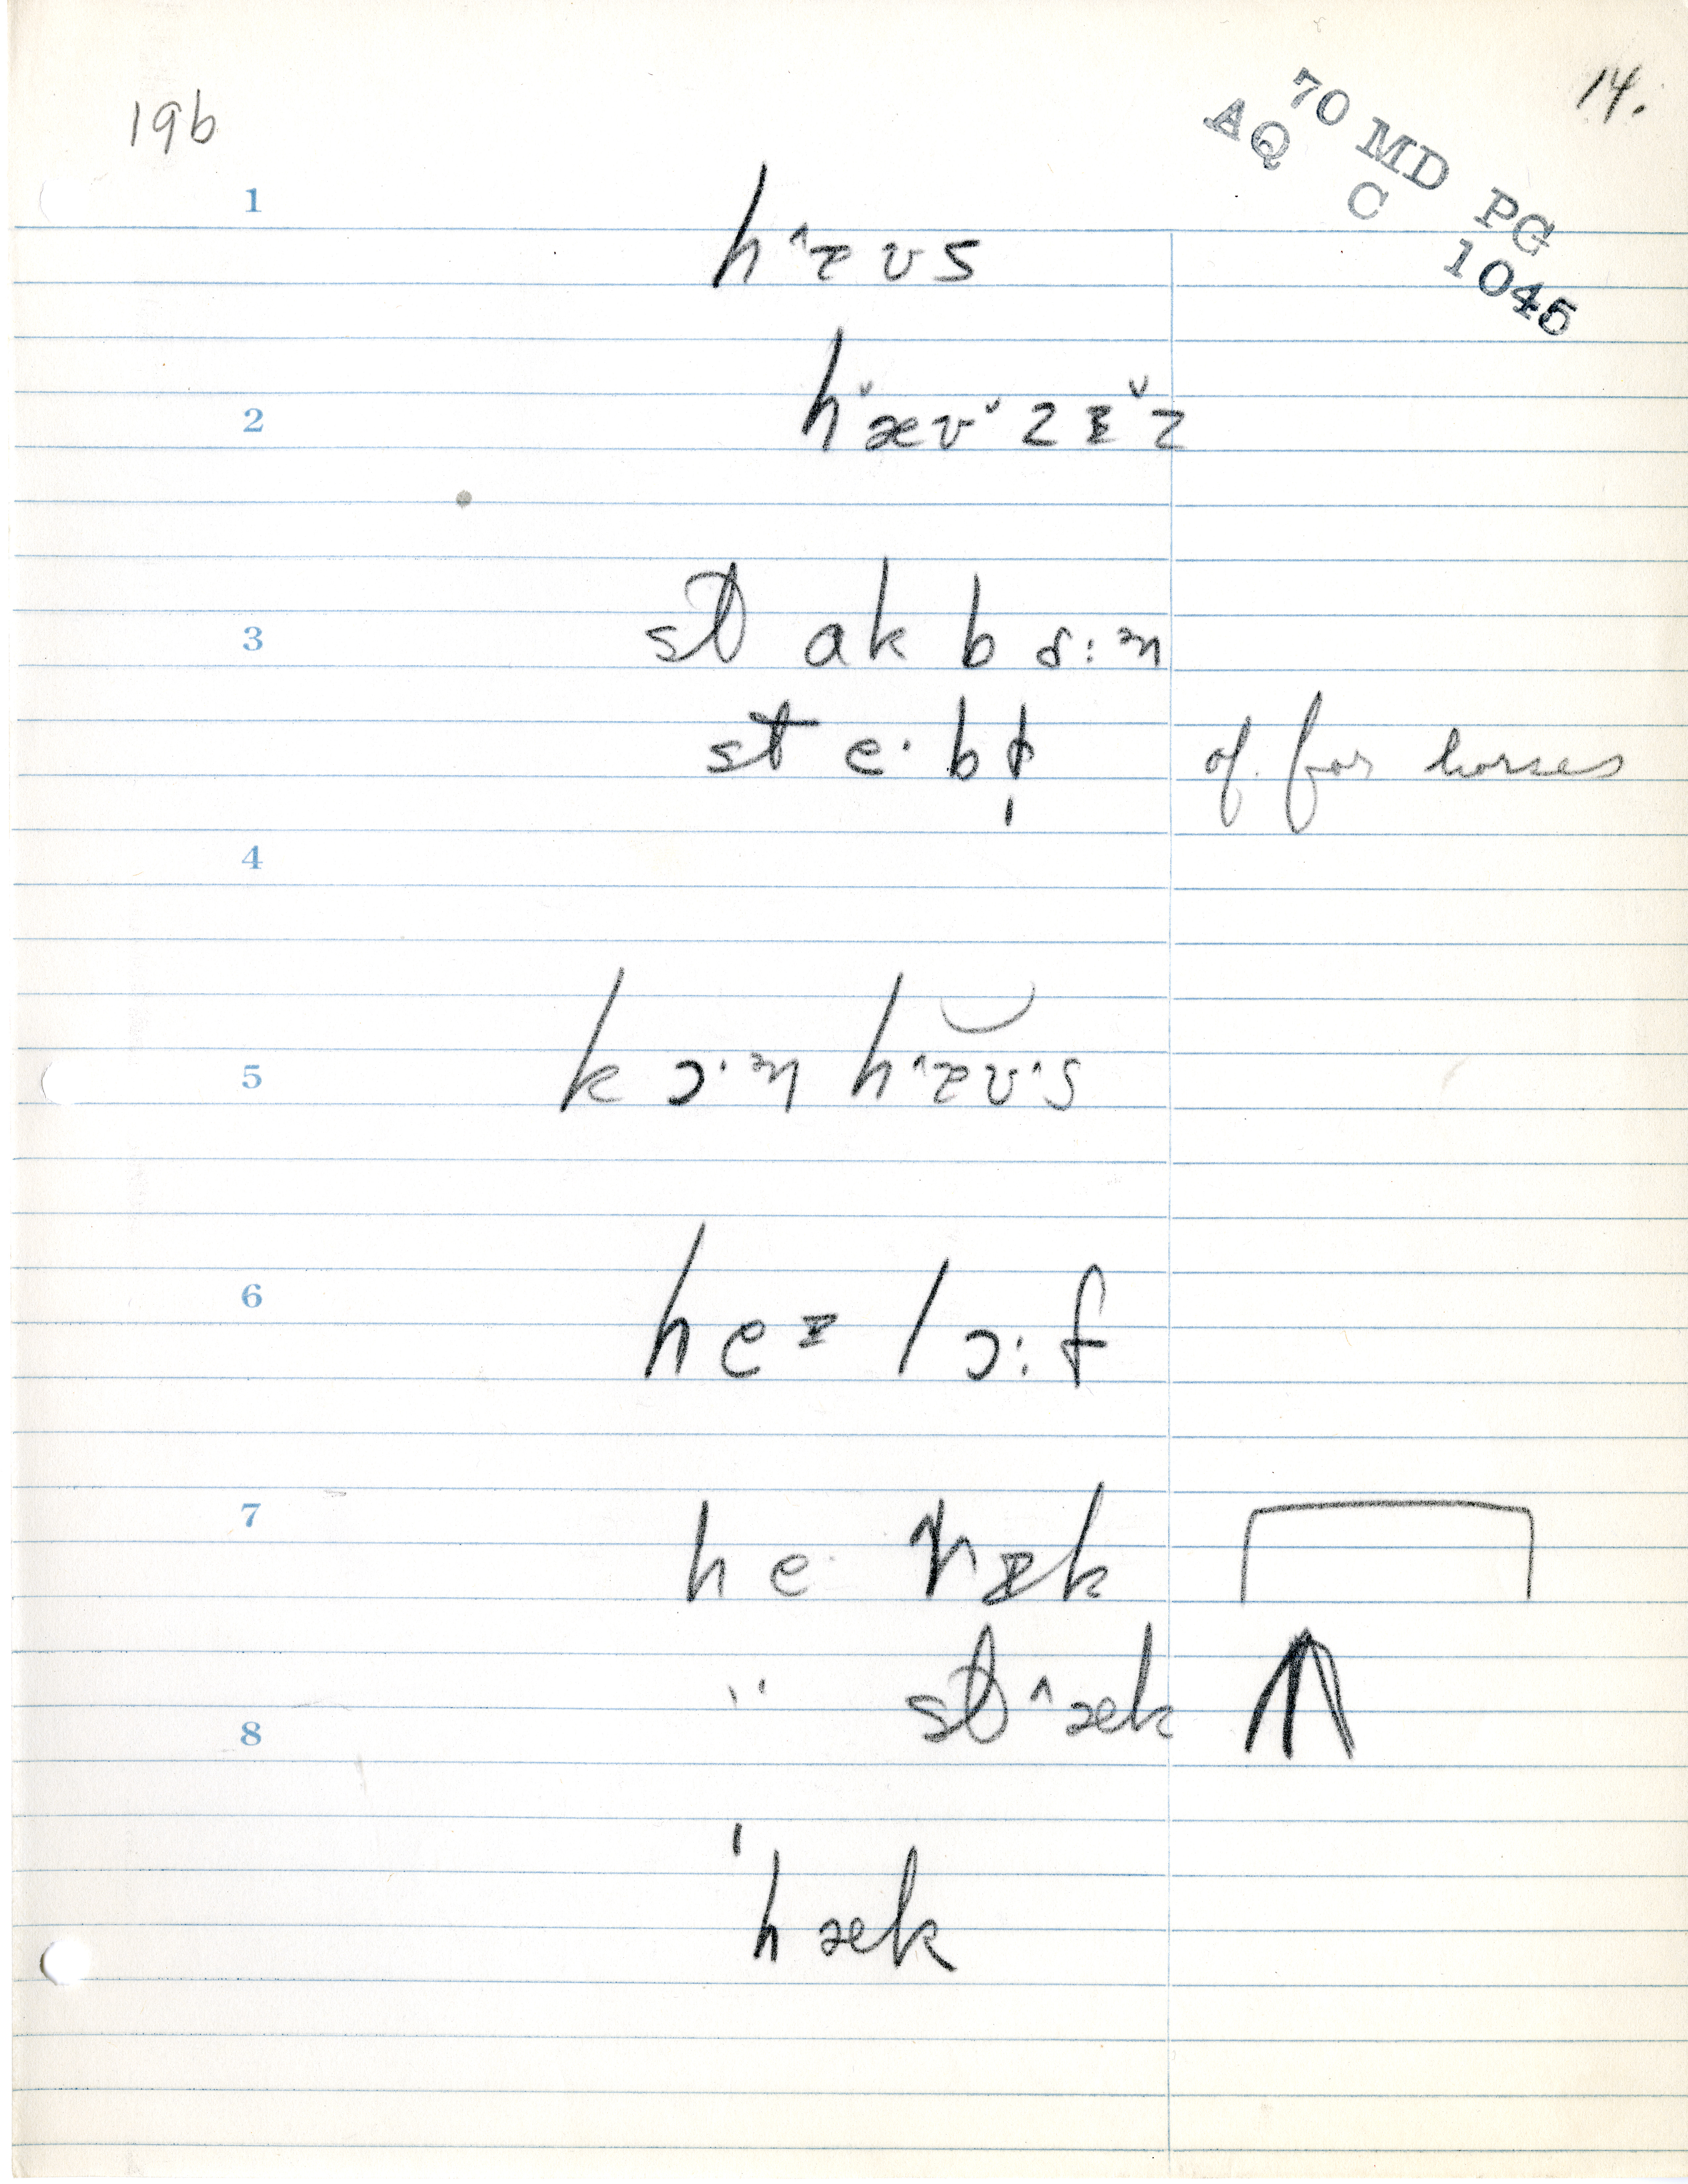 19b
14.
70 MD PG
AQ C 1045
1
h ˄ɛ ʊ s
2
h ˅æ ʊ ˅ z ɪ ˅ z
3
st ɑ k b ɑ : ɚn
st e · b ɫ̩ of. for horses
4
5
k ɔ · ɚn h ˄ɛ ʊ · s
6
h e ɪ l ɔ : f
7
h e · ɪ k
8
" st ˄ æ k
ˈh æ k